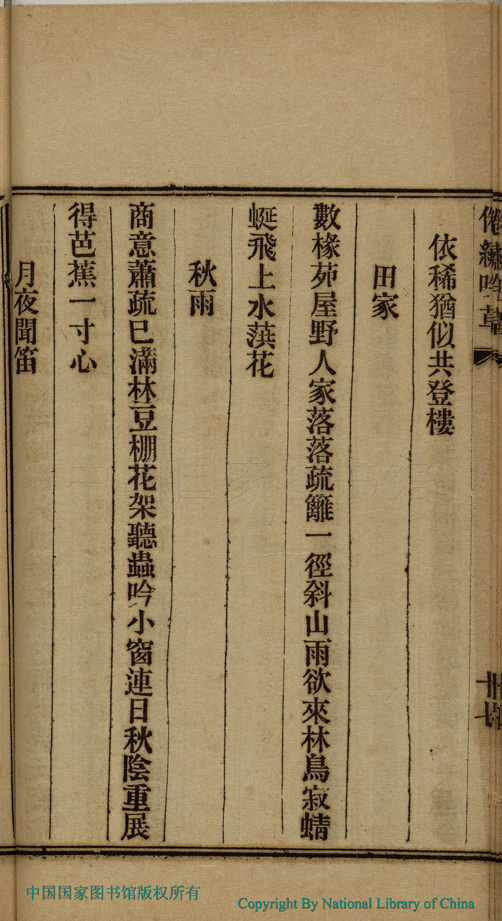 倦繡吟草
依稀猶似共登樓
田家
數椽茆屋野人家落落疏籬一徑斜山雨欲來林鳥寂蜻
蜓飛上水葓花
秋雨
商意蕭疏已滿林豆棚花架聽蟲吟小窗連日秋陰重展
得芭蕉一寸心
月夜聞笛
中国国家图书馆版权所有
Copyright By National Library of China